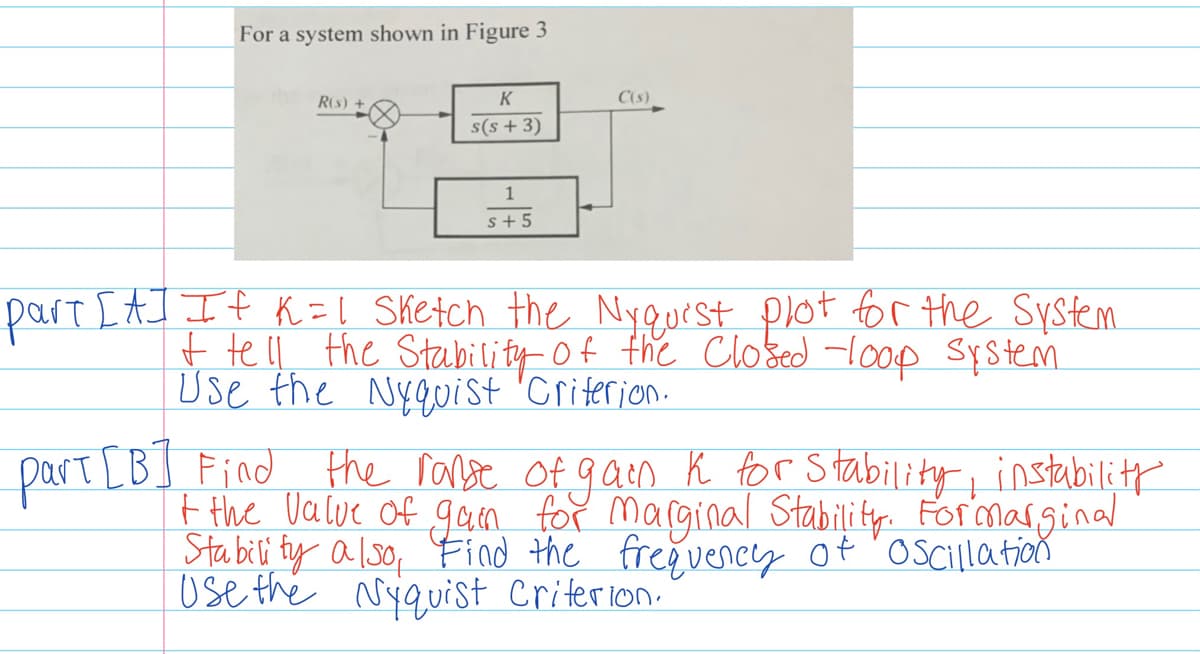 For a system shown in Figure 3
R(s) +
K
C(s)
s(s + 3)
−
1
s + 5
part [A] If K=1 Sketch the Nyquist plot for the System
+ tell the Stability of the Closed-loop System
Use the Nyquist Criterion.
part [B] Find the range of gain K for Stability, instability
+ the Value of gain for marginal Stability. For marginal
Stability also, Find the frequency of oscillation
Use the Nyquist Criterion.